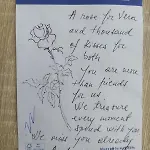 A rose for Vera
and thousand
of kisses for
both
You are more
than friends
for us.
We treasure
every moment
spend with you
We miss you already